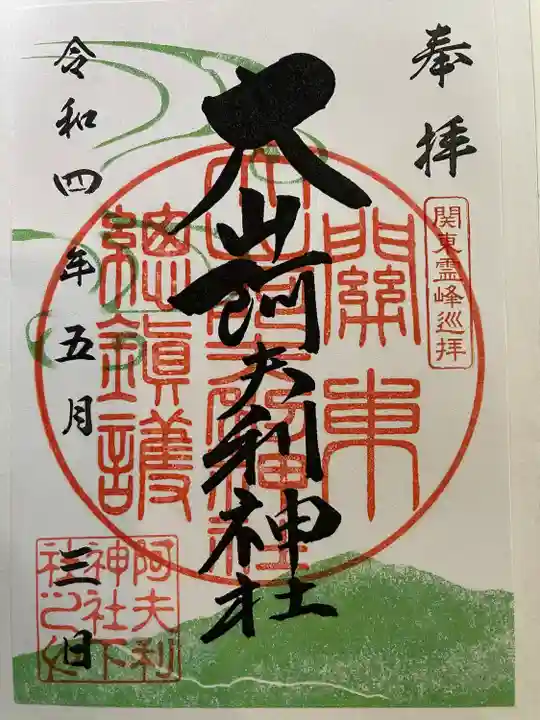 奉拝
関東霊峰巡拝
關東
大山阿夫利神社
總鎮護
令和四年五月三日
阿夫利
神社下
社之印